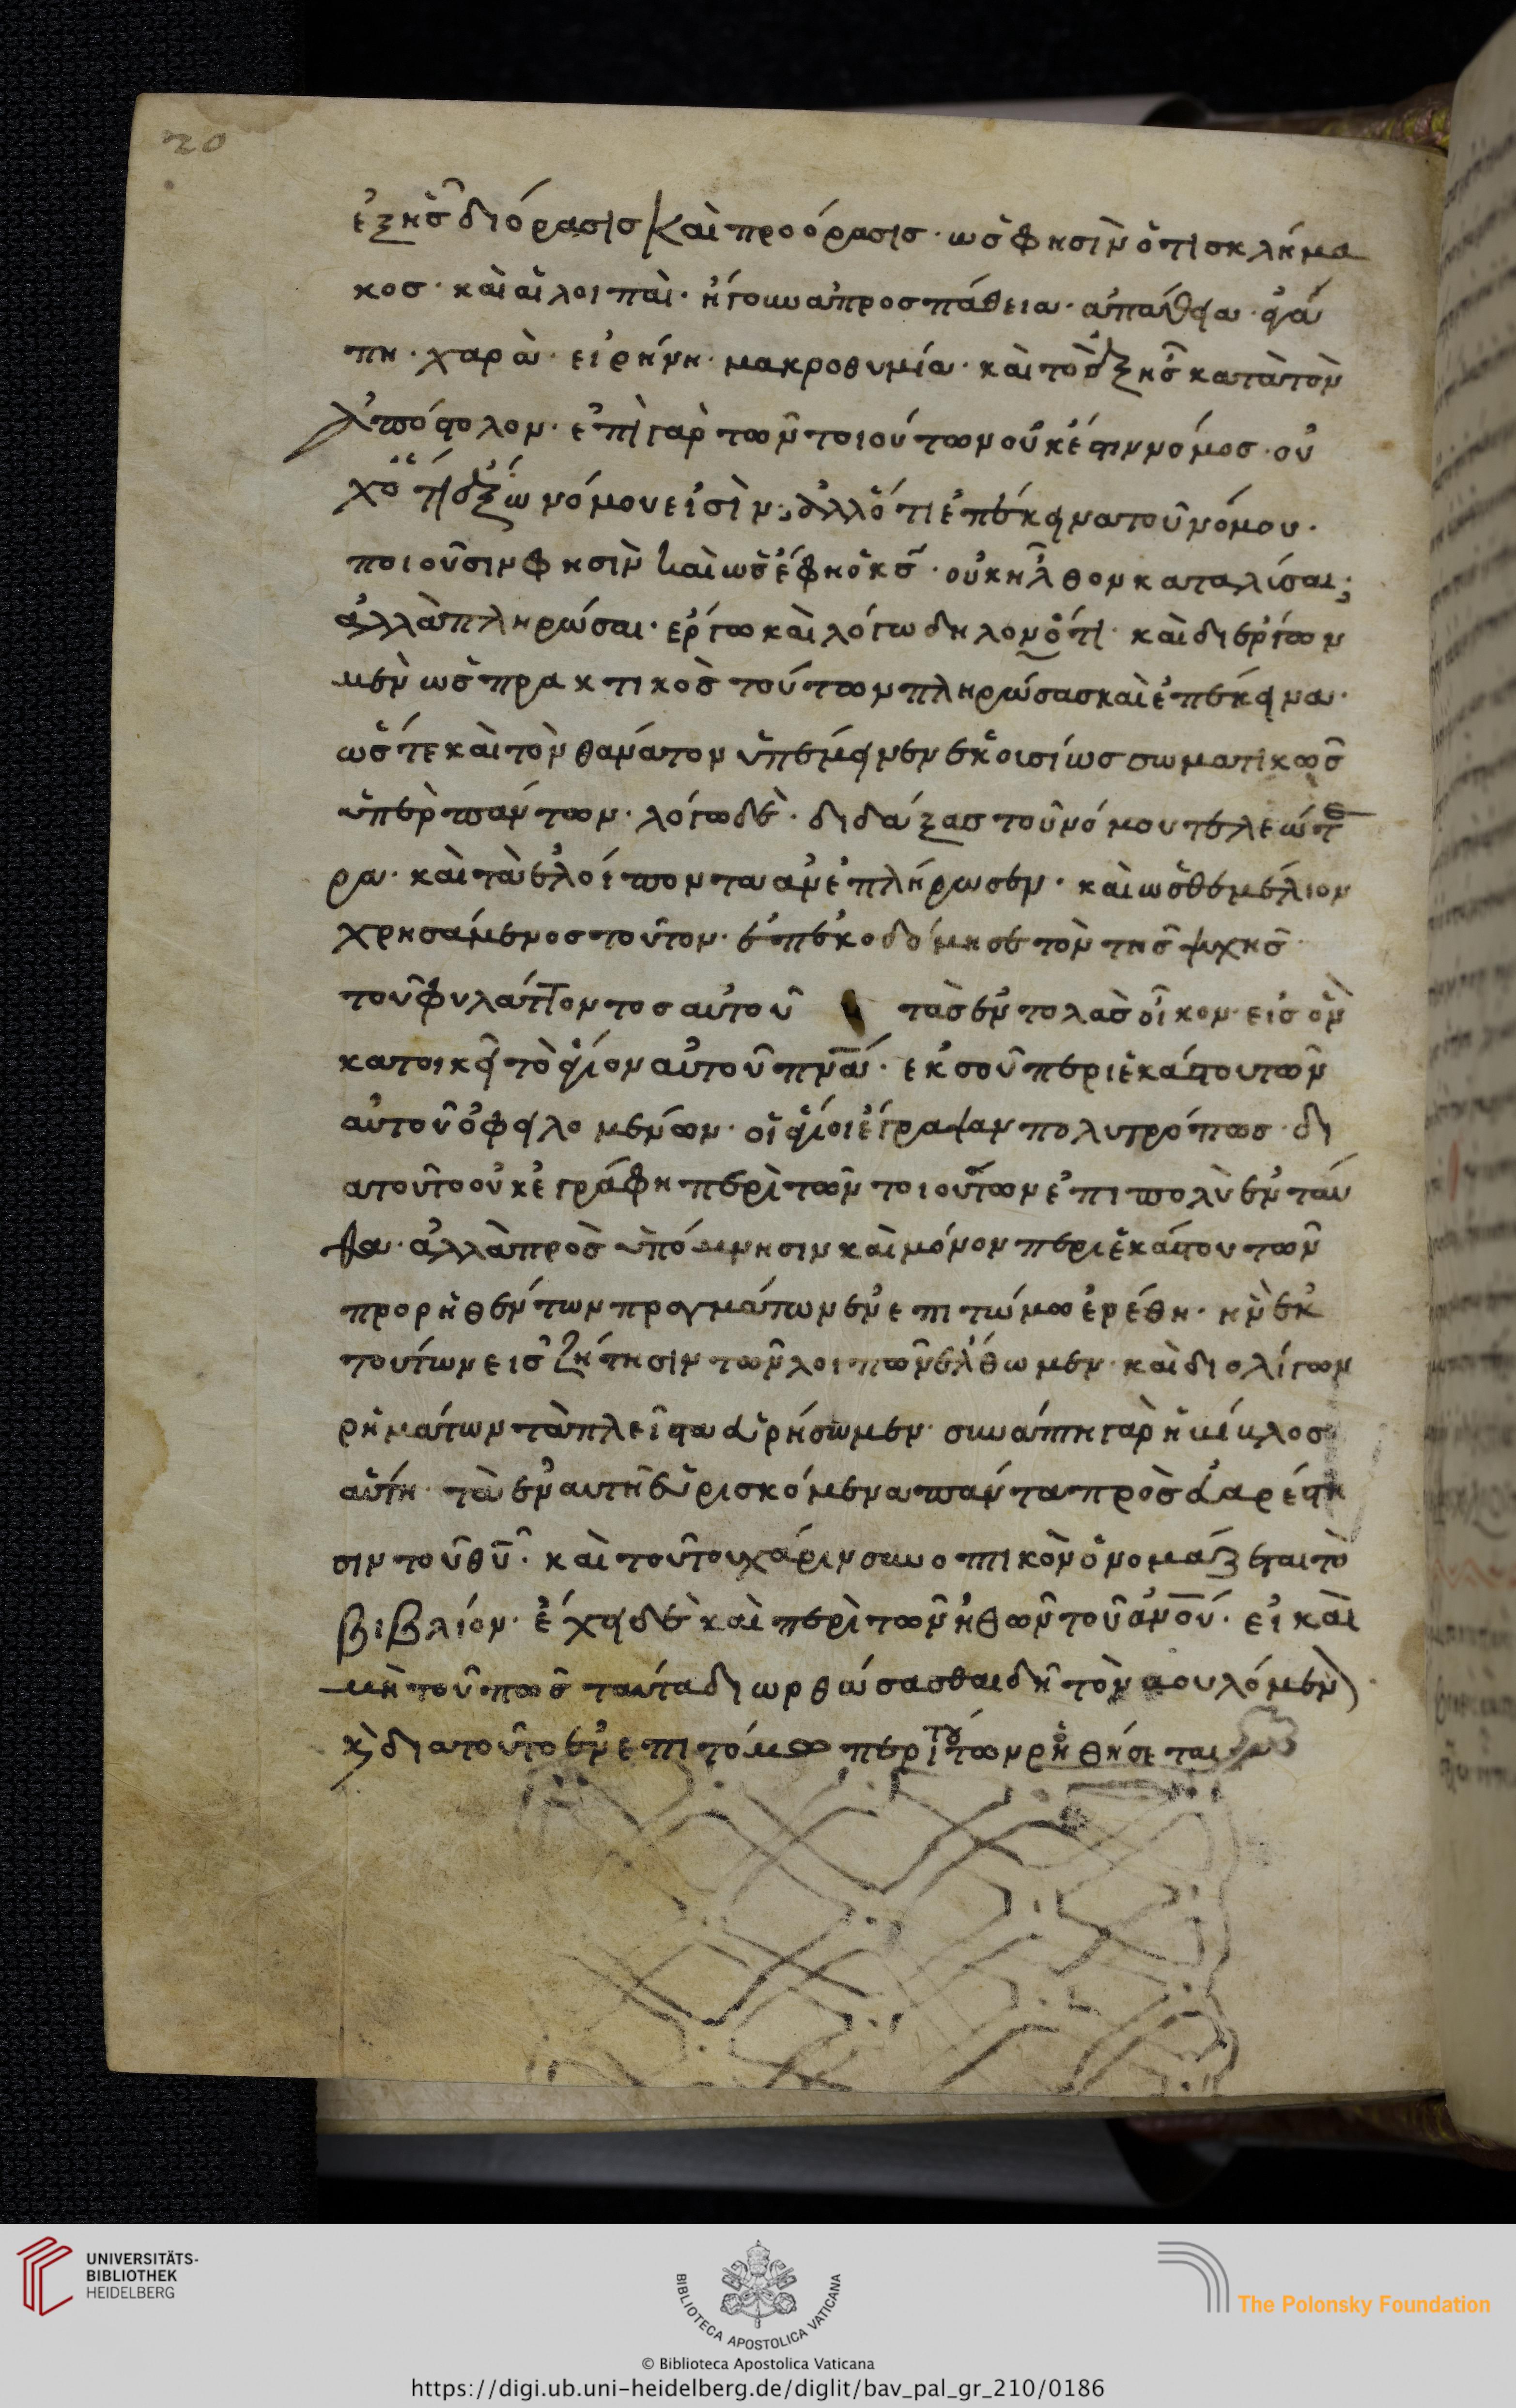 20
ἑξῆς διόρασις καὶ προόρασις· ὡς φησὶν ὁ τῆς κλήμα
κος· καὶ αἱ λοιπαὶ· ἤγουν ἀπροσπάθεια· ἀπάθεια· ἀγά
πη· χαρὰ· εἰρήνη· μακροθυμία· καὶ τὸ ἑξῆς κατὰ τὸν
ἀπόστολον· ἐπὶ γὰρ τῶν τοιούτων οὐκ ἔστιν νόμος· οὐ
χ ὅτι ἔξω νόμου εἰσὶν· ἀλλ' ὅτι ἐπέκεινα τοῦ νόμου·
ποιοῦσιν φησὶν καὶ ὡς ἔφη ὁ κς· οὐκ ἦλθον καταλύσαι·
ἀλλὰ πληρώσαι· ἔργω καὶ λόγω δηλονότι· καὶ δι' ἔργων
μὲν ὡς πρακτικὸς τούτων πληρώσας καὶ ἐπέκεινα·
ὥστε καὶ τὸν θανάτον ὑπέμεινεν ἑκουσίως σωματικῶς
ὑπὲρ πάντων· λόγω δὲ· διδάξας τοῦ νόμου τελεώτε
ρα· καὶ τὰ ἐλοίποντα ἀνεπλήρωσεν· καὶ ὡς θεμέλιον
χρησάμενος τοῦτον· ἐπεκοδόμησε τὸν τῆς ψυχῆς
τοῦ φυλάττοντος αὐτοῦ τὰς ἐντολὰς οἶκον· εἰς ὃν
κατοικεῖ τὸ ἅγιον αὐτοῦ πνα·
αὐτοῦ ὀφειλομένων· οἱ ἅγιοι ἔγραψαν πολυτρόπως· δι
ατοῦτο οὐκ ἐγράφη περὶ τῶν τοιούτων ἐπιπολὺ ἐνταύ
θα· ἀλλὰ πρὸς ὑπόμνησιν καὶ μόνον περὶ ἑκάστου τῶν
προρηθέντων πραγμάτων ἐν ἐπιτόμω ἐρέθη· ἢν ἐκ
τούτων εἰς ζήτησιν τῶν λοιπῶν ἔλθωμεν· καὶ δι ολίγων
ρημάτων τὰ πλεῖστα εὑρήσωμεν· συνάπτη γὰρ ἡ κύκλος
αὕτη· τὰ ἐν αυτῆ εὑρισκόμενα πάντα πρὸς εὐαρέστη
σιν τοῦ θυ· καὶ τούτου χάριν συνοπτικὸν ὀνομάζεται τὸ
βιβλίον· ἔχει δὲ καὶ περὶ τῶν ἠθῶν τοῦ ἀνου· εἰ καὶ
μὴ τοῦ πῶς ταῦτα διωρθώσασθαι δεῖ τὸν βουλόμενον
κ διατοῦτο ἐν ἐπιτόμω περὶ τούτων ρηθήσεται
UNIVERSITÄTS-
BIBLIOTHEK
HEIDELBERG
BIBLIOTECA APOSTOLICA VATICANA
The Polonsky Foundation
© Biblioteca Apostolica Vaticana
https://digi.ub.uni-heidelberg.de/diglit/bav_pal_gr_210/0186